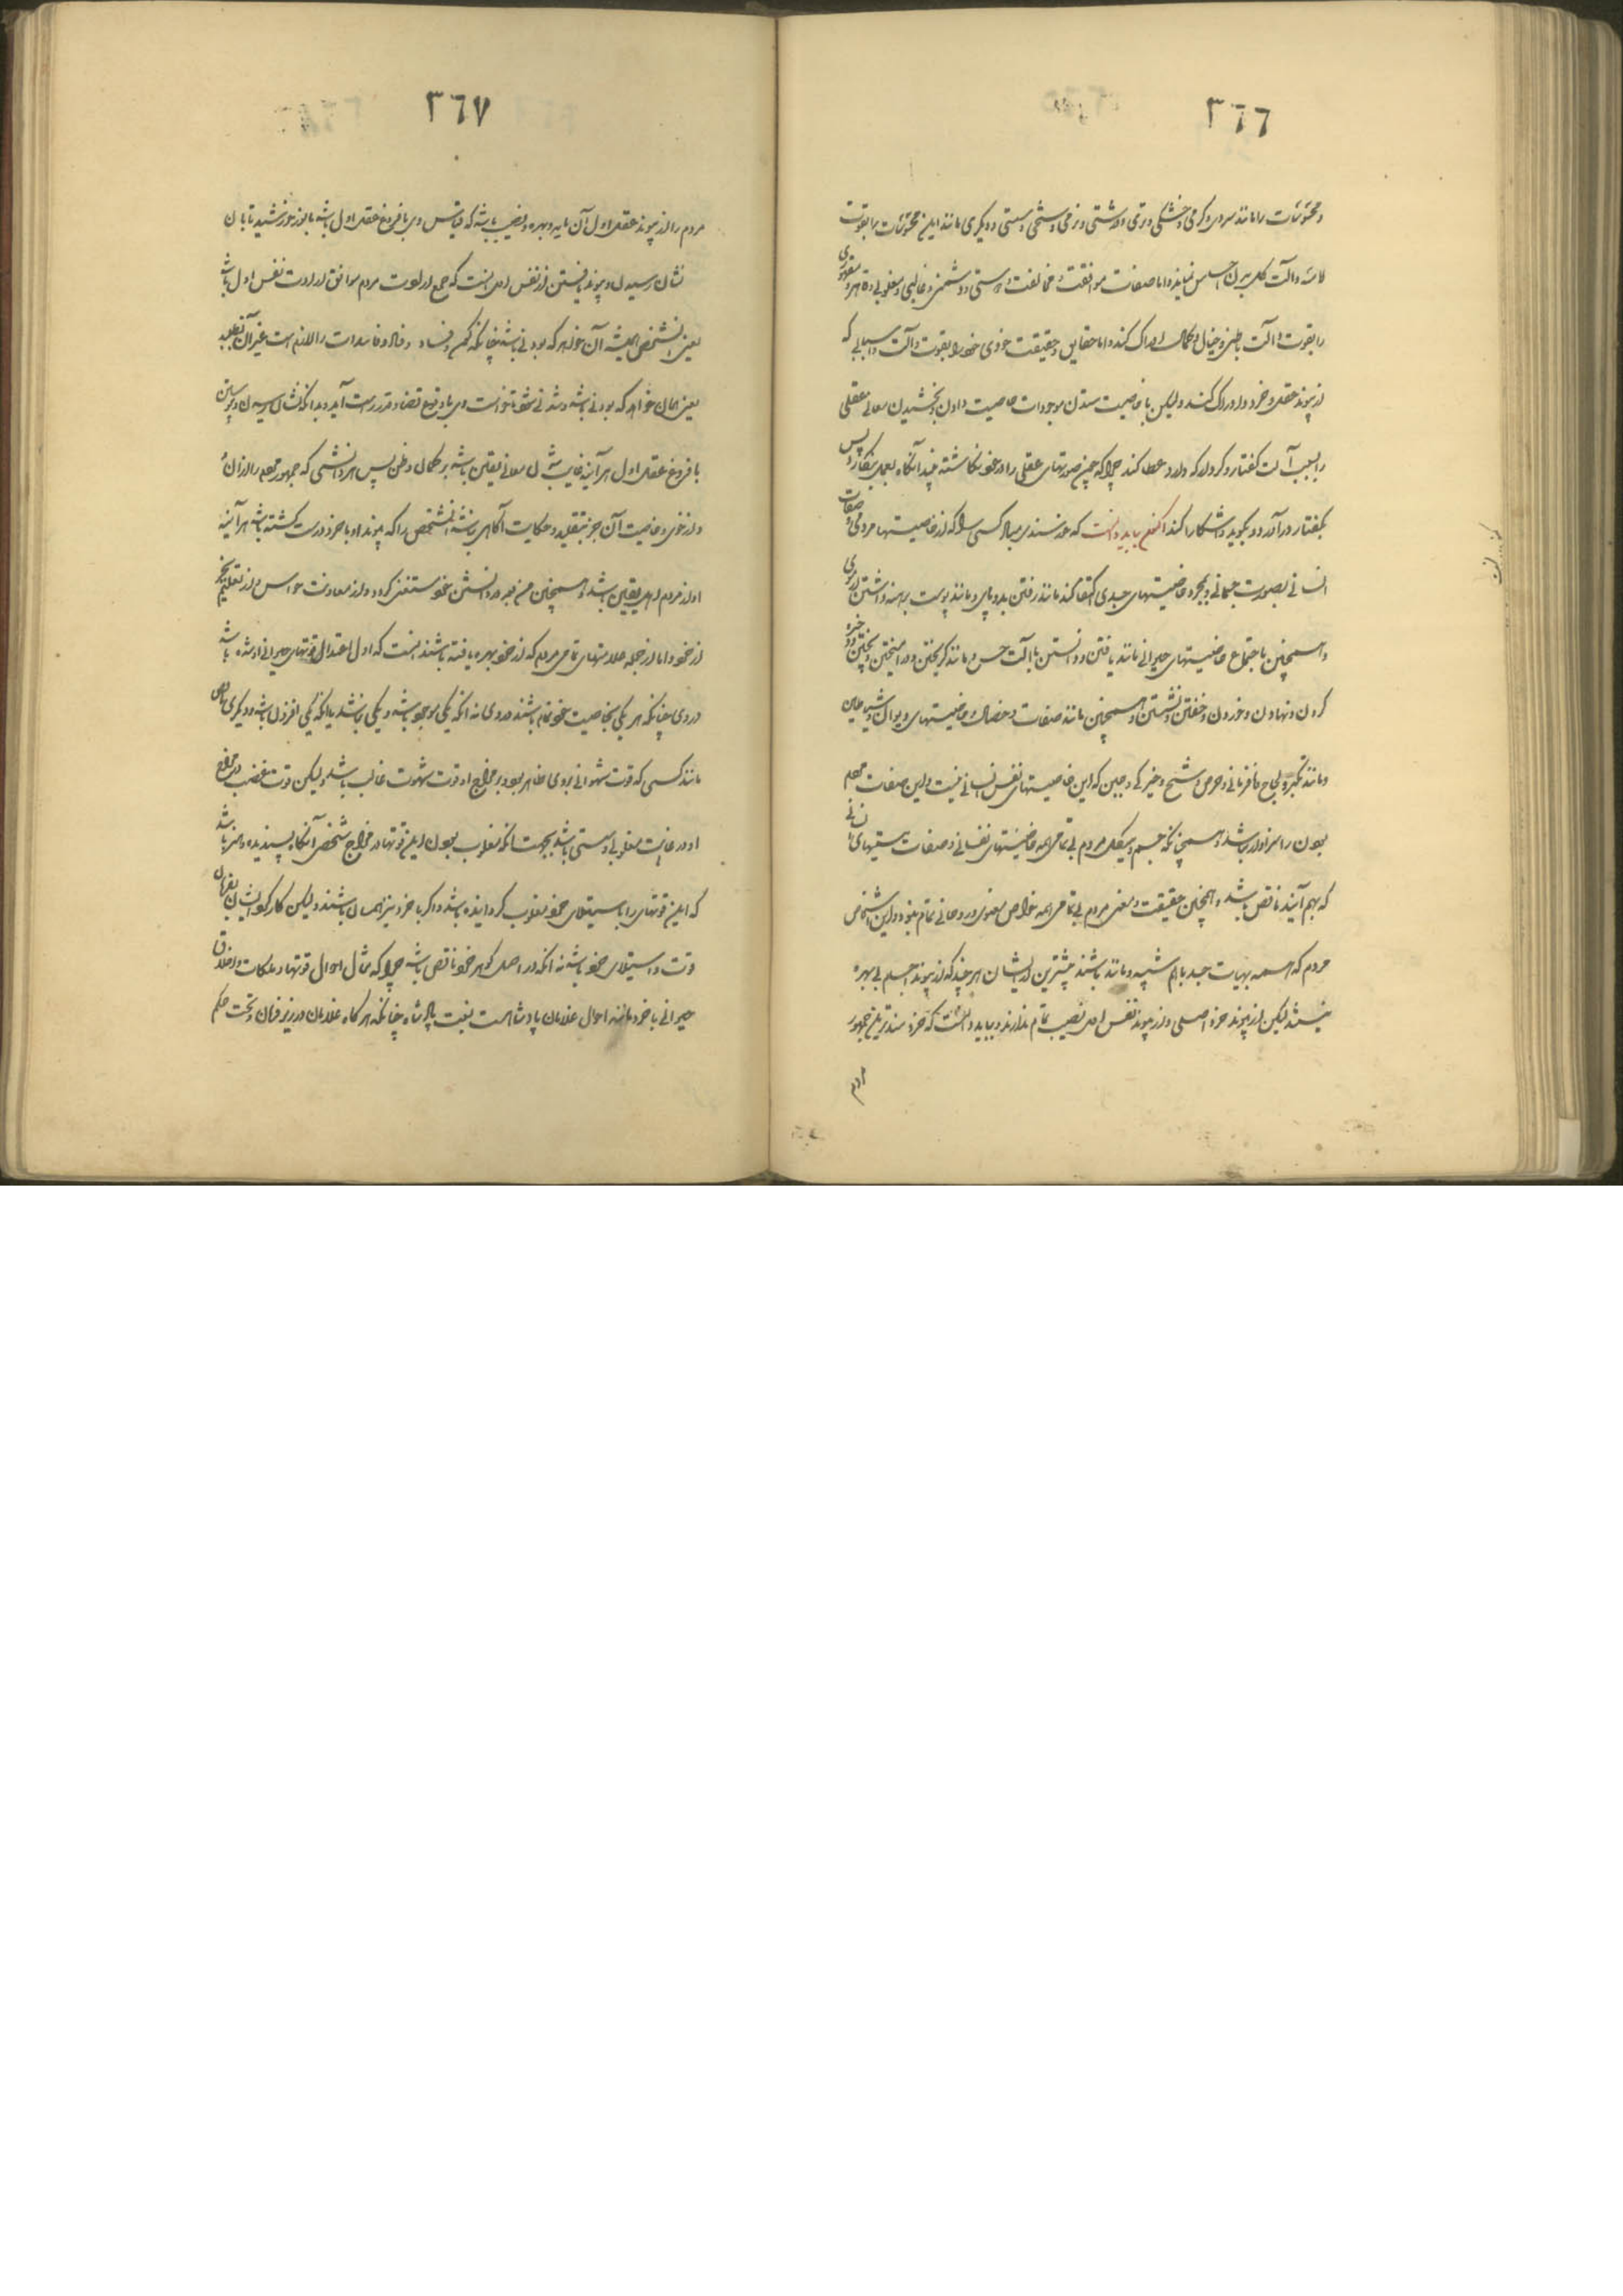 ٣٦٦
و محسوسات را مانند سردی و گرمی و خشکی و تری و درشتی و نرمی و سختی و سستی و دیگری مانند این محسوسات را بقوت
لامسه و آلت کل بدن احساس نماید و اما صفات موافقت و مخالفت و دوستی و دشمنی و غالبی و مغلوبی و قاهری و مقهوری
را بقوت و آلت باطنی و خیال و گمان ادراک کند و اما حقایق و حقیقت خودی خود را بقوت و آلت و اسبابی که
از پیوند عقلی و خرد دارد ادراک کند ولیکن با خاصیت ستدن موجودات خاصیت دادن و بخشیدن معانی عقلی
را بسبب آلت گفتار و کردار که دارد عطا کند چرا که چون صورتهای عقلی را در خود نگاشته بیند آنگاه بعمل بنگارد پس
بگفتار در آرد و بگوید و آشکارا کند اکنون بباید دانست که خورسندی مباد کسی را که از خاصیتها مردمی و صفات
انسانی بصورت جسمانی و بمجرد خاصیتهای جسدی اکتفا کند مانند رفتن بدو پای و مانند پوست برهنه داشتن از موی
و همچنین با جتماع خاصیتهای حیوانی مانند یافتن و دانستن با آلت حس و مانند گریختن و در آمیختن و پختن و ذخیره
کردن و نهادن و خوردن و خفتن و نشستن و همچنین مانند صفات و خصال و خاصیتهای دیوان و شیاطین
و مانند تکبر و لجاج و نافرمانی و حرص و شح و خیرگی و جبن که این خاصیتهای نفس انسانی نیست و این صفات مردم
بودن را سزاوار نباشد و همچنانکه جسم و هیکل مردم بی تمامی همه خاصیتهای نفسانی و صفات هستیهای انسانی
که بهم آیند ناقص باشد و همچنین حقیقت و معنی مردم بی تمامی همه خواص معنوی و روحانی تمام نبود و این اشخاص
مردم که همه بهیات جسد با هم شبیه و مانند باشند بیشترین ایشان هر چند که از پیوند اجسام بی بهره
نیستند لیکن از پیوند خرد اصلی و از پیوند نفس اول نصیب تمام ندارند و بباید دانست که خردمندترین جمهور
مردم
٣٦٧
مردم را از پیوند عقل اول آن مایه و بهره و نصیب باشد که قیاس وی با فروغ عقل اول باشد با نور خورشید تابان
نشان رسیدن و پیوند یافتن از نفس اول آنست که جمع ارادت مردم موافق ارادت نفس اول باشد
یعنی آنشخص همیشه آن خواهد که بودنی باشد چنانکه کون و فساد و فنا و فاسدات را لازم است غیر آن نطلبد
یعنی همان خواهد که بودنی باشد و شدنی شود تا خواست وی با وقوع قضا و قدر راست آید و بدانکه نشان رسیدن و پیوستن
با فروغ عقل اول هر آینه غایب شدن معانی یقین باشد بر گمان و ظن پس هر دانشی که جمهور مردم را از آن
و از خوی و خاصیت آن جز بتقلید و حکایت آگاهی نباشد آنشخص را که پیوند او با خرد درست گشته باشد هر آینه
او از مردم اهل یقین باشد و همچنین مردم در دانستن خود مستغنی گردد و از معاونت حواس و از تعلیم غیر
از خود و اما از جمله علامتهای تمامی مردم که از خود بهره یافته باشند آنست که اول اعتدال قوتهای حیوانی او شده باشد
در وی چنانکه هر یکی بخاصیت خود تمام باشند در وی نه آنکه یکی موجود باشد و یکی نباشد یا آنکه یکی افزون باشد و دیگری ناقص
مانند کسی که قوت شهوانی بر وی ظاهر بود و بر مزاج او قوت شهوت غالب باشد ولیکن قوت غضب در مزاج
او در غایت مغلوبی و سستی باشد بجهت آنکه مغلوب بودن این قوتها در مزاج شخص آنگاه پسندیده و هنر باشد
که این قوتهای را باستیلای خود مغلوب گردانیده باشد و اگر با خرد نیز همسان باشند ولیکن کارکرد ایشان بفرمان
قوت و استیلای خرد باشد نه آنکه در اصل گوهر خود ناقص باشد چرا که مثال احوال قوتها و ملکات و اخلاق
حیوانی با خرد مانند احوال غلامان پادشاهست نسبت با پادشاه چنانکه هر گاه غلامان در زیر فرمان و تحت حکم